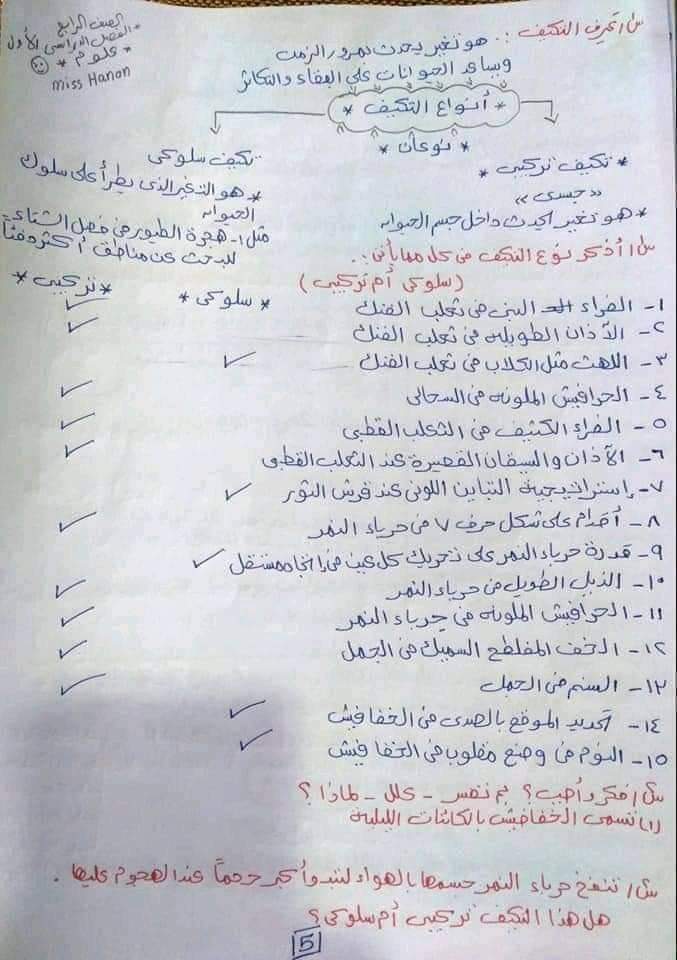 الصف الرابع
الفصل الدراسي الأول
* علوم *
miss Hanan
س١/ تعريف التكيف :. هو تغير يحدث بمرور الزمن
ويساعد الحيوانات على البقاء والتكاثر
* أنواع التكيف *
* نوعان *
* تكيف تركيبى *
« جسدى »
* هو تغير يحدث داخل جسم الحيوان
تكيف سلوكى
* هو التغير الذى يطرأ على سلوك
الحيوان
مثل ١- هجرة الطيور فى فصل الشتاء
للبحث عن مناطق أكثر دفئاً
س١/ أذكر نوع التكيف فى كل مما يأتى :.
(سلوكى أم تركيبى)
* سلوكى * * تركيبى *
١- الفراء البنى فى ثعلب الفنك ✓
٢- الآذان الطويله فى ثعلب الفنك ✓
٣- اللهث مثل الكلاب فى ثعلب الفنك ✓
٤- الحرافيش الملونه فى السحالى ✓
٥- الفراء الكثيف فى الثعلب القطبى ✓
٦- الآذان والسيقان القصيرة عند الثعلب القطبى ✓
٧- إستراتيجية التباين اللونى عند قرش الثور ✓
٨- أقدام على شكل حرف ٧ فى حرباء النمر ✓
٩- قدرة حرباء النمر على تحريك كل عين فى اتجاه مستقل ✓
١٠- الذيل الطويل فى حرباء النمر ✓
١١- الحرافيش الملونه فى حرباء النمر ✓
١٢- الخف المفلطح السميك فى الجمل ✓
١٣- السنم فى الجمل ✓
١٤- تحديد الموقع بالصدى فى الخفافيش ✓
١٥- النوم فى وضع مقلوب فى الخفافيش ✓
س/ فكر وأجب ؟ بم تفسر - علل - لماذا ؟
١) تسمى الخفافيش بالكائنات الليلية
س/ تنفخ حرباء النمر جسمها بالهواء لتبدو أكبر حجماً عند الهجوم عليها .
هل هذا التكيف تركيبى أم سلوكى ؟
5